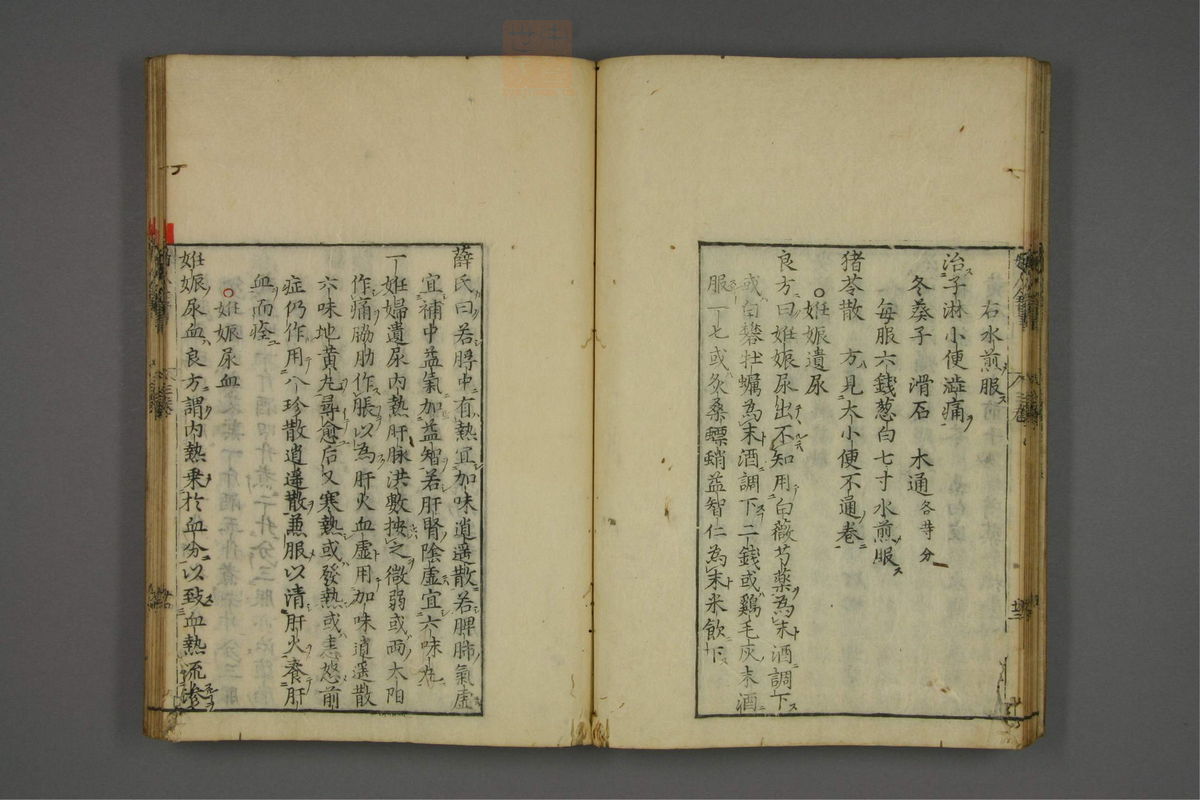 右水煎服
治子淋小便澁痛
冬葵子 滑石 木通各等分
毎服六錢葱白七寸水煎服
猪苓散 方見大小便不通卷
○妊娠遺尿
良方曰妊娠尿出不知用白薇芍藥為末酒調下
或白礬牡蠣為末酒調下二錢或鷄毛灰末酒
服一七或灸桑螵蛸益智仁為末米飲下
薛氏曰若脬中有熱宜加味逍遥散若脾肺氣虛
宜補中益氣加益智若肝腎陰虛宜六味丸
一妊婦遺尿内熱肝脉洪數按之微弱或兩太阳
作痛脇肋作脹以為肝火血虛用加味逍遥散
六味地黄丸尋愈后又寒熱或發熱或恚怒前
症仍作用八珍散逍遥散兼服以清肝火養肝
血而痊
○妊娠尿血
妊娠尿血良方謂内熱乗於血分以致血熱流滲